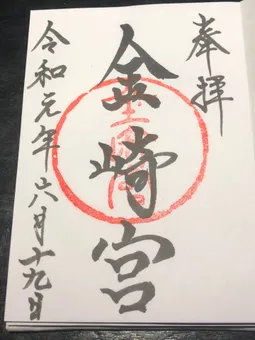 奉拝
金崎宮
令和元年六月十九日